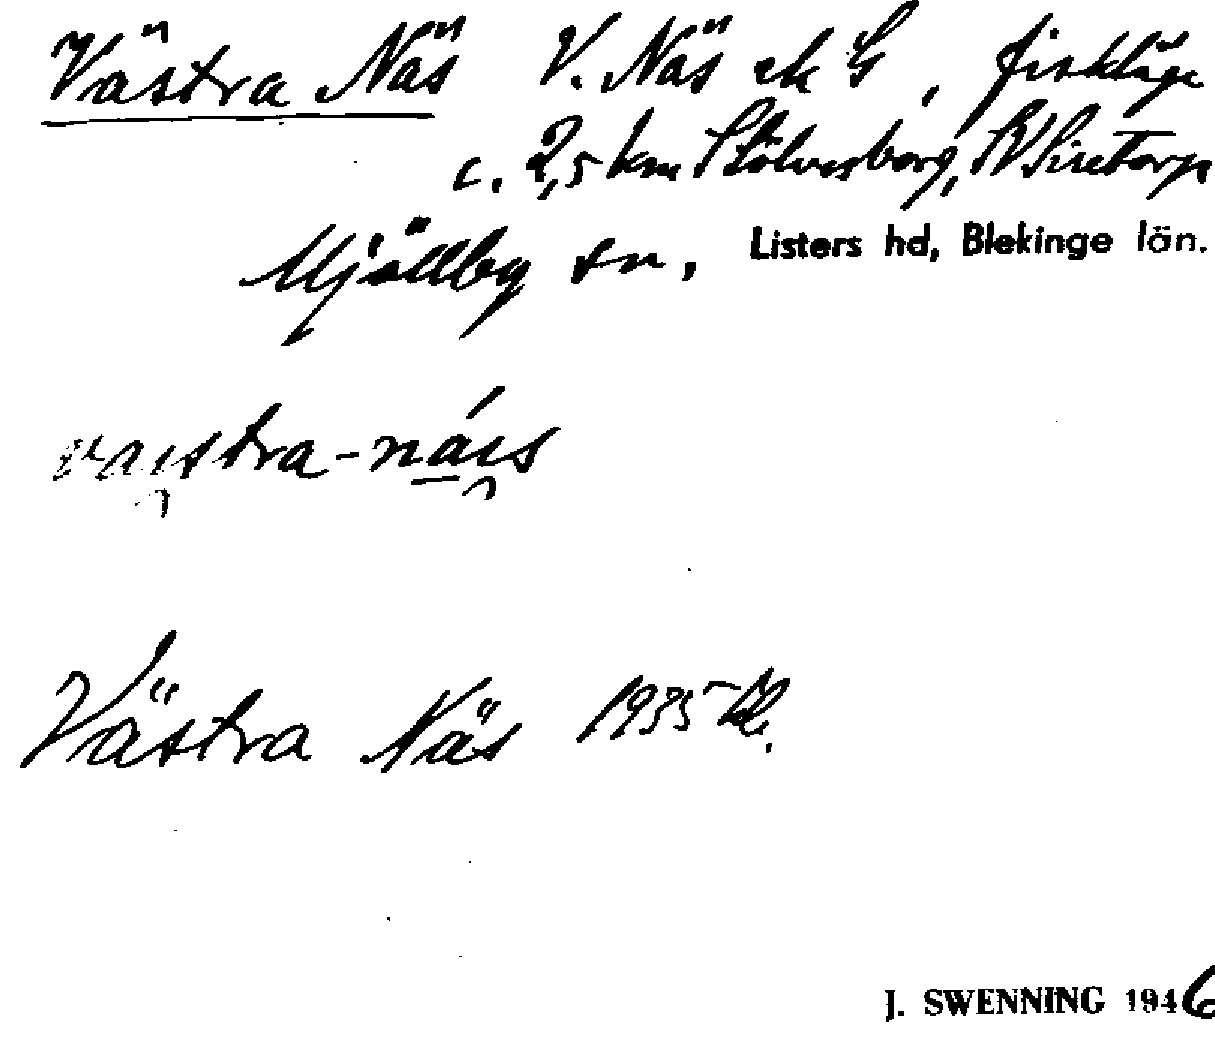 Västra Näs V. Näs ek G, fiskläge
c. 2,5 km Sölvesborg, SV Siretorp
Mjällby sn, Listers hd, Blekinge län.
västra-näs
Västra Näs 1935
J. SWENNING 1946